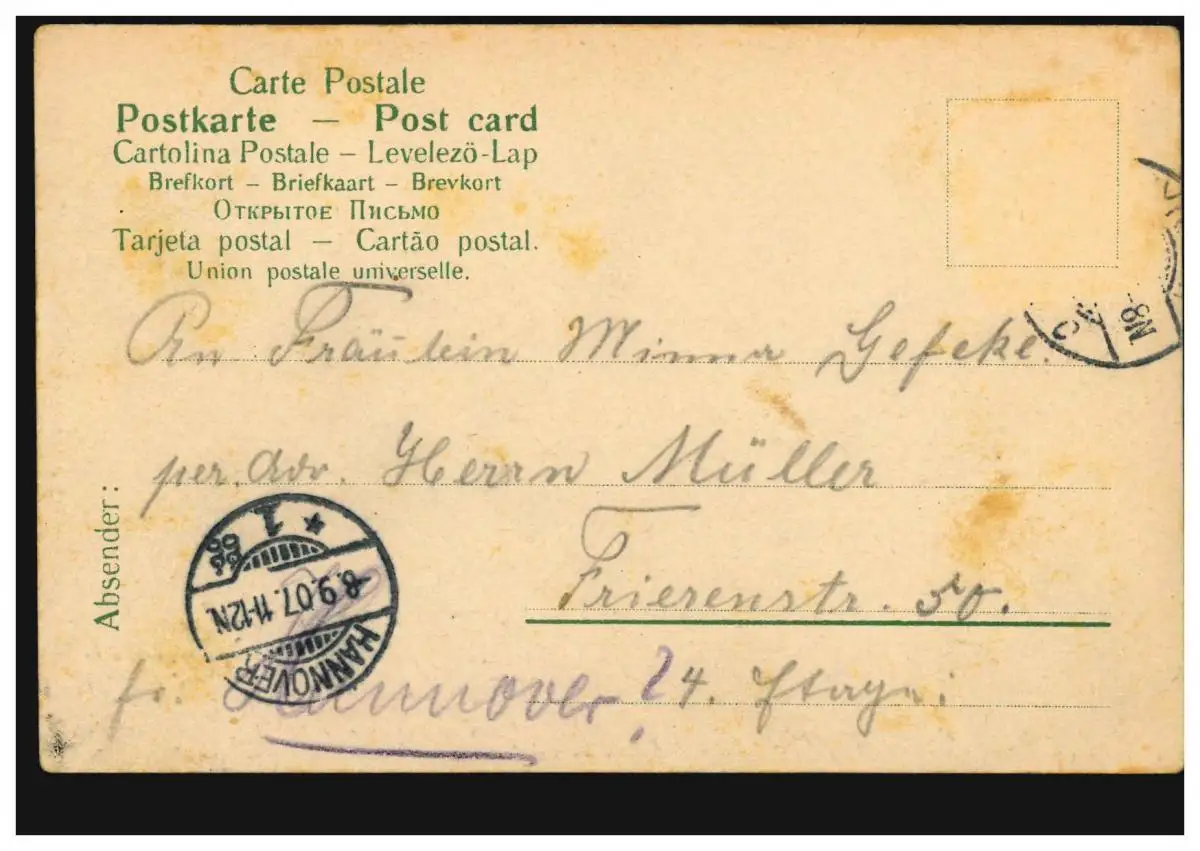 Carte Postale
Postkarte — Post card
Cartolina Postale – Levelezö-Lap
Brefkort – Briefkaart – Brevkort
Открытое Письмо
Tarjeta postal — Cartão postal.
Union postale universelle.
An Fräulein Minna Gefeke.
per. Adr. Herrn Müller
Frierenstr. 50.
Hannover 4. Etage.
Absender:
HANNOVER 1
8.9.07. 11-12N.
8N